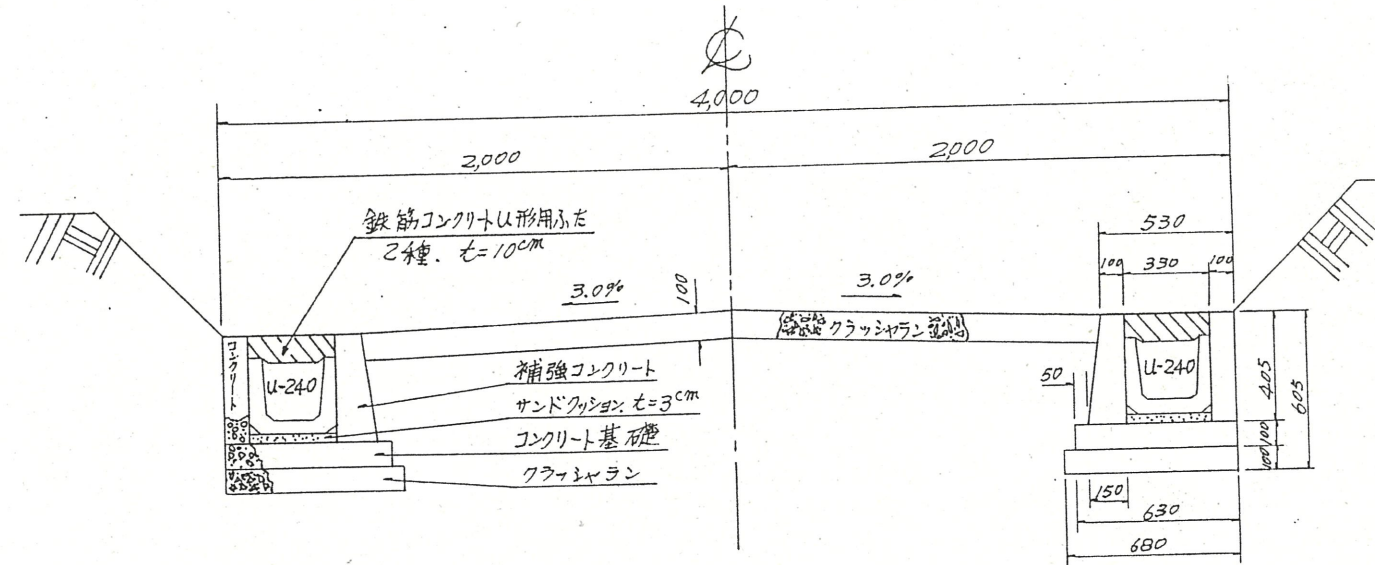 ℄
4,000
2,000
2,000
鉄筋コンクリートU形用ふた
2種. t=10cm
530
100
330
100
3.0%
100
3.0%
クラッシャラン
コンクリート
U-240
U-240
補強コンクリート
サンドクッション. t=3cm
コンクリート基礎
クラッシャラン
50
405
605
100
100
150
630
680